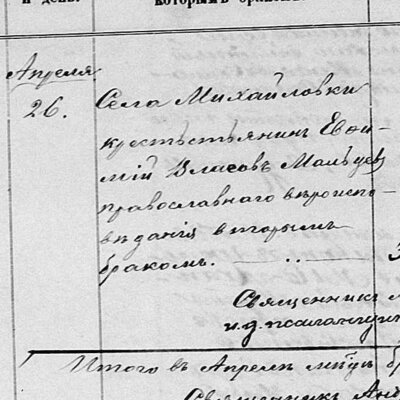 и день.
которымъ бракомъ
Апреля
26.
Села Михайловки
крестьянинъ Евѳи-
мій Власовъ Мальцев
православнаго вѣроиспо-
вѣданія вторымъ
бракомъ.
Священникъ
и.д. псаломщик
Итого въ Апрелѣ мцѣ бр
Священникъ Анд